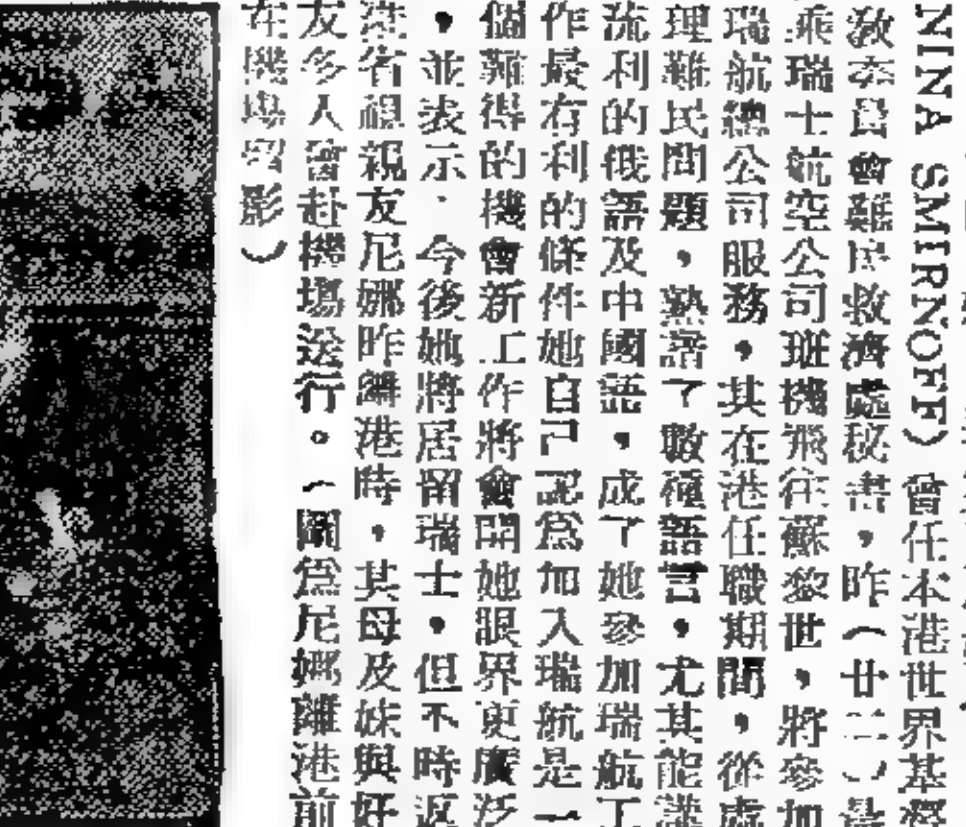 NINA SMIRNOFF）曾任本港世界基督
教委員會難民救濟處秘書，昨（廿二）晨
乘瑞士航空公司班機飛往蘇黎世，將參加
瑞航總公司服務，其在港任職期間，從處
理難民問題，熟諳了數種語言，尤其能講
流利的俄語及中國語，成了她參加瑞航工
作最有利的條件她自己認爲加入瑞航是一
個難得的機會新工作將會開她眼界更廣泛
，並表示．今後她將居留瑞士，但不時返
港省視親友尼娜昨離港時，其母及妹與好
友多人曾赴機塲送行。（圖爲尼娜離港前
在機塲留影）